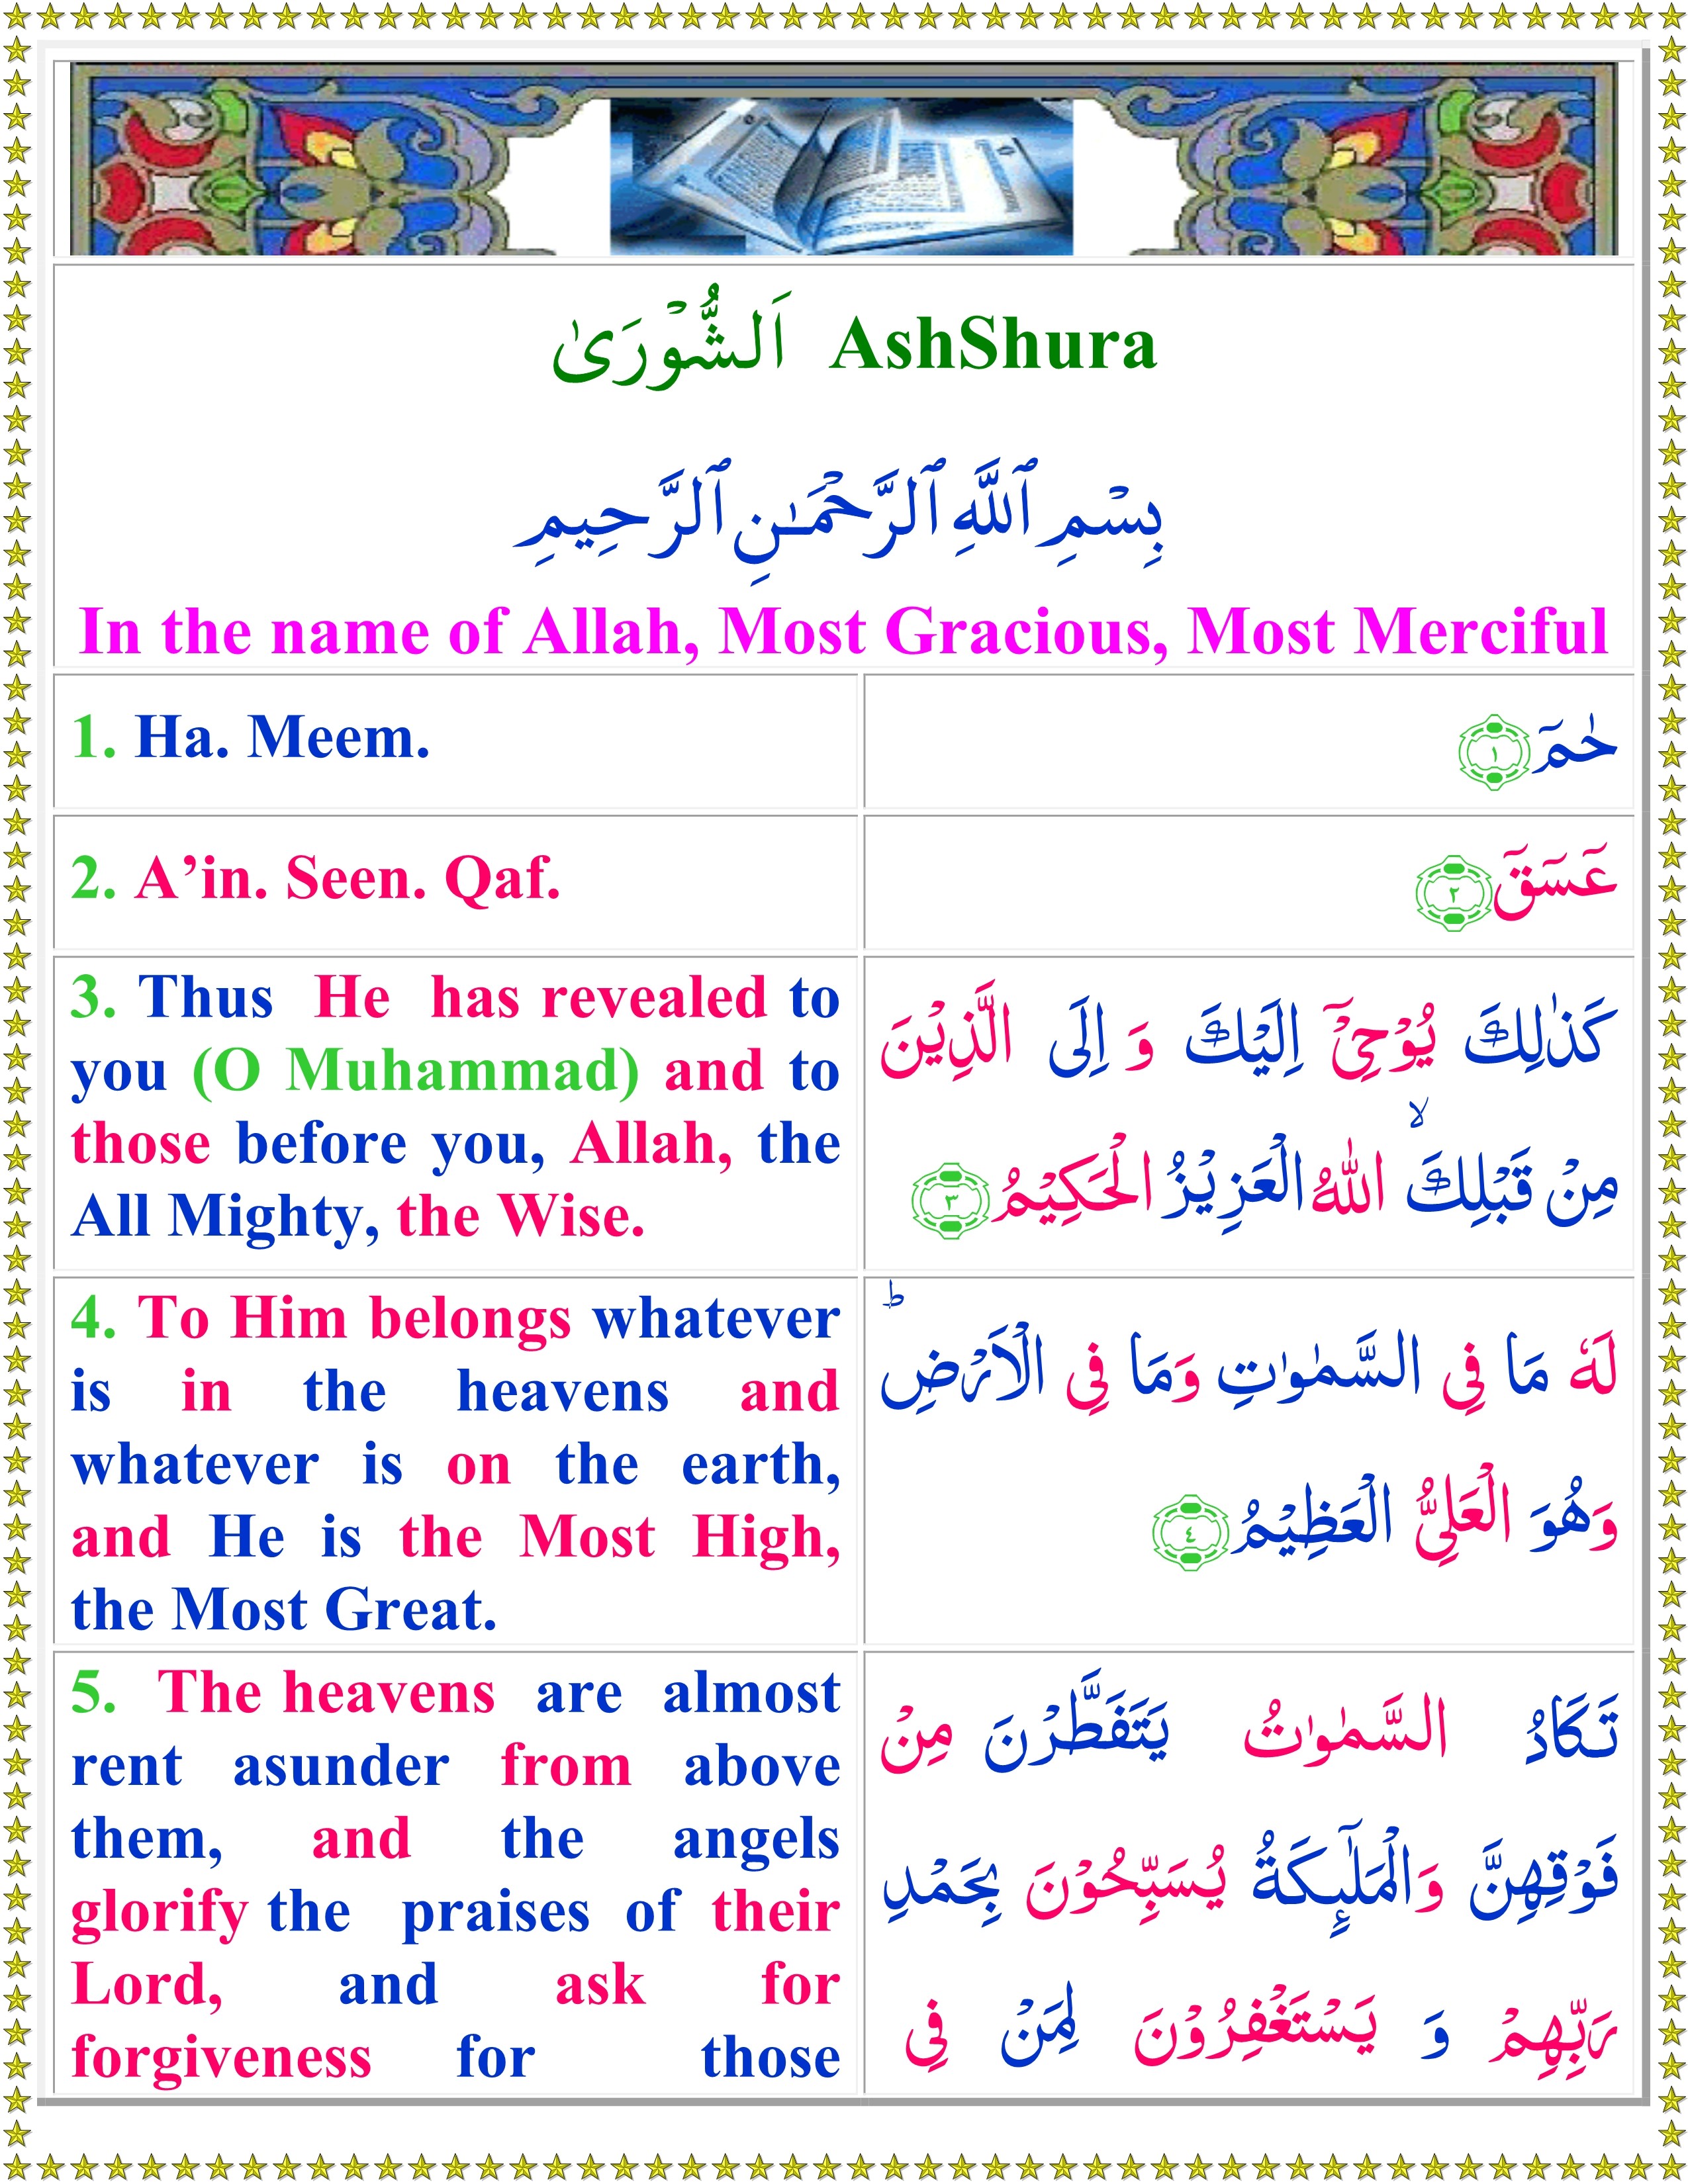 اَلشُّوْرَىٰ AshShura
بِسْمِ ٱللَّهِ ٱلرَّحْمَـٰنِ ٱلرَّحِيمِ
In the name of Allah, Most Gracious, Most Merciful
1. Ha. Meem.
حٰمٓ ۝١
2. A’in. Seen. Qaf.
عٓسٓقٓ ۝٢
3. Thus He has revealed to
you (O Muhammad) and to
those before you, Allah, the
All Mighty, the Wise.
كَذٰلِكَ يُوْحِىْۤ اِلَيْكَ وَ اِلَى الَّذِيْنَ
مِنْ قَبْلِكَۙ اللّٰهُ الْعَزِيْزُ الْحَكِيْمُ ۝٣
4. To Him belongs whatever
is in the heavens and
whatever is on the earth,
and He is the Most High,
the Most Great.
لَهٗ مَا فِى السَّمٰوٰتِ وَمَا فِى الْاَرْضِؕ
وَهُوَ الْعَلِىُّ الْعَظِيْمُ ۝٤
5. The heavens are almost
rent asunder from above
them, and the angels
glorify the praises of their
Lord, and ask for
forgiveness for those
تَكَادُ السَّمٰوٰتُ يَتَفَطَّرْنَ مِنْ
فَوْقِهِنَّ وَالْمَلٰٓٮِٕكَةُ يُسَبِّحُوْنَ بِحَمْدِ
رَبِّهِمْ وَ يَسْتَغْفِرُوْنَ لِمَنْ فِى